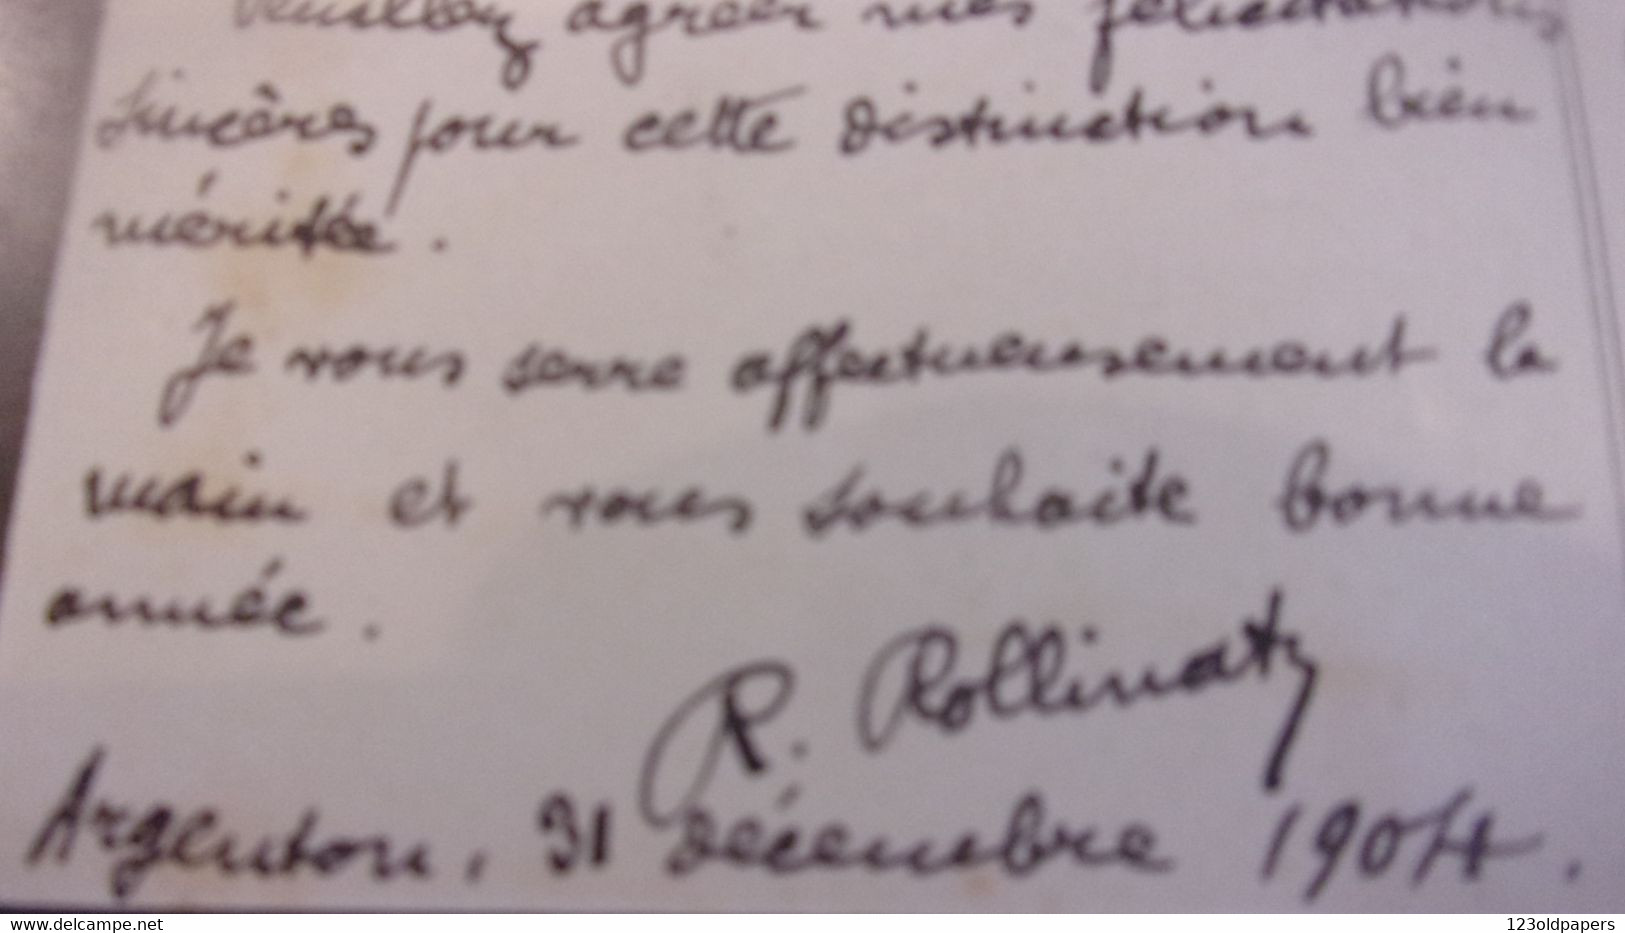 Veuillez agréer mes félicitations
sincères pour cette distinction bien
méritée.
Je vous serre affectueusement la
main et vous souhaite bonne
année.
R. Rollinat
Argenton, 31 décembre 1904.
delcampe.net
123oldpapers